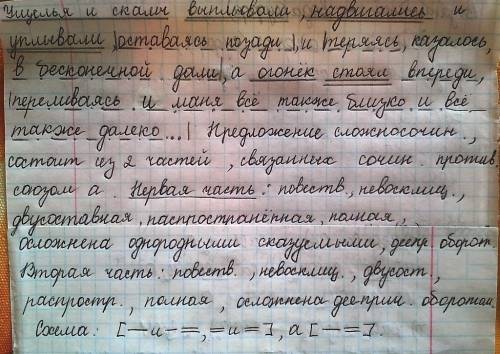 Ущелья и скалы выплывали, надвигались и
уплывали |оставаясь позади|, и |теряясь, казалось,
в бесконечной дали|, а огонёк стоял впереди,
|переливаясь и маня всё также близко и всё
также далеко...| Предложение сложносочин.,
состоит из 2 частей, связанных сочин. против.
союзом а. Первая часть: повеств., невосклиц.,
двусоставная, распространённая, полная,
осложнена однородными сказуемыми, деепр. оборот.
Вторая часть: повеств., невосклиц., двусост.,
распростр., полная, осложнена дееприч. оборотами.
Схема: [—и—=,=и=], а [—=].